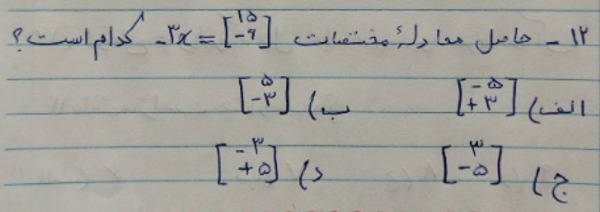 ۱۲ - حاصل معادلهٔ مختصات -۳x = [۱۵ -۹] کدام است؟
الف) [-۵ +۳] ب) [۵ -۳]
ج) [۳ -۵] د) [-۳ +۵]